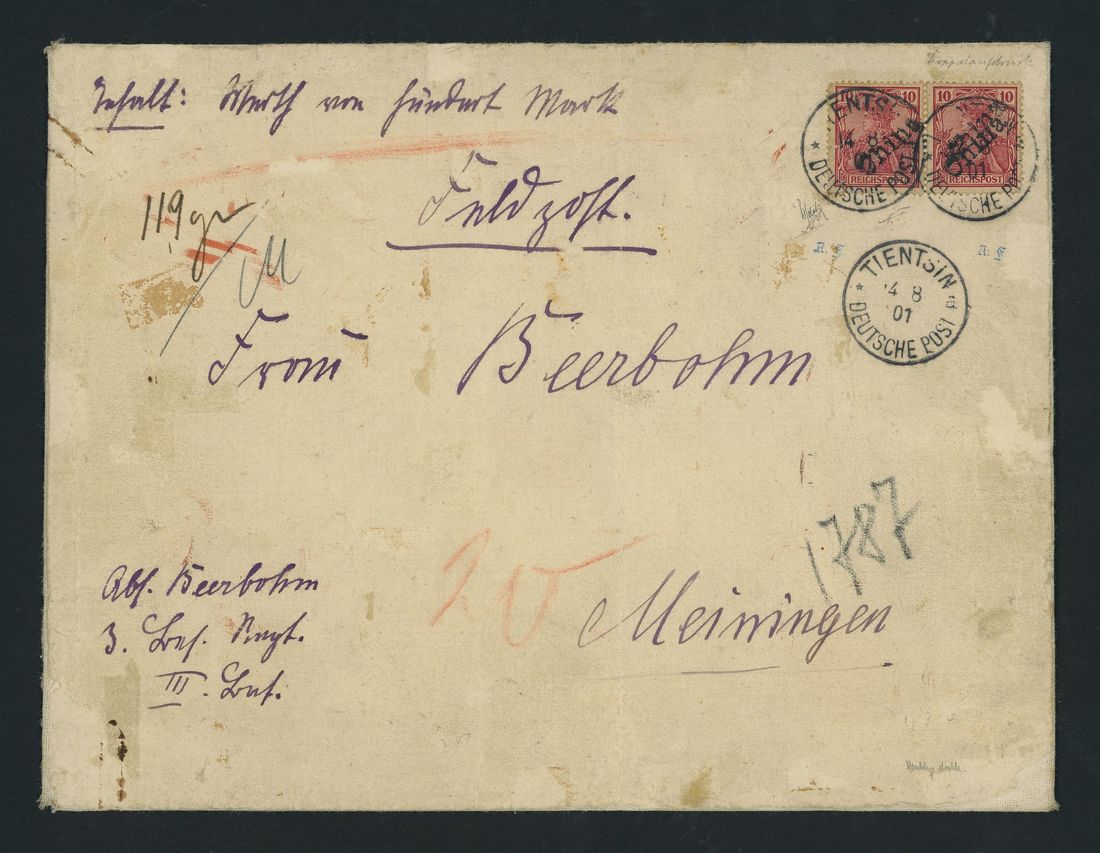 Doppelaufdruck
Inhalt: Werth von hundert Mark
10 10
China China
REICHSPOST REICHSPOST
TIENTSIN
14 8
DEUTSCHE POST
01
DEUTSCHE POST
Feldpost.
119 gr
TIENTSIN
14 8
01
DEUTSCHE POST
Frau Beerbohm
1787
20
Meiningen
Abs. Beerbohm
3. Inf. Regt.
III.
double